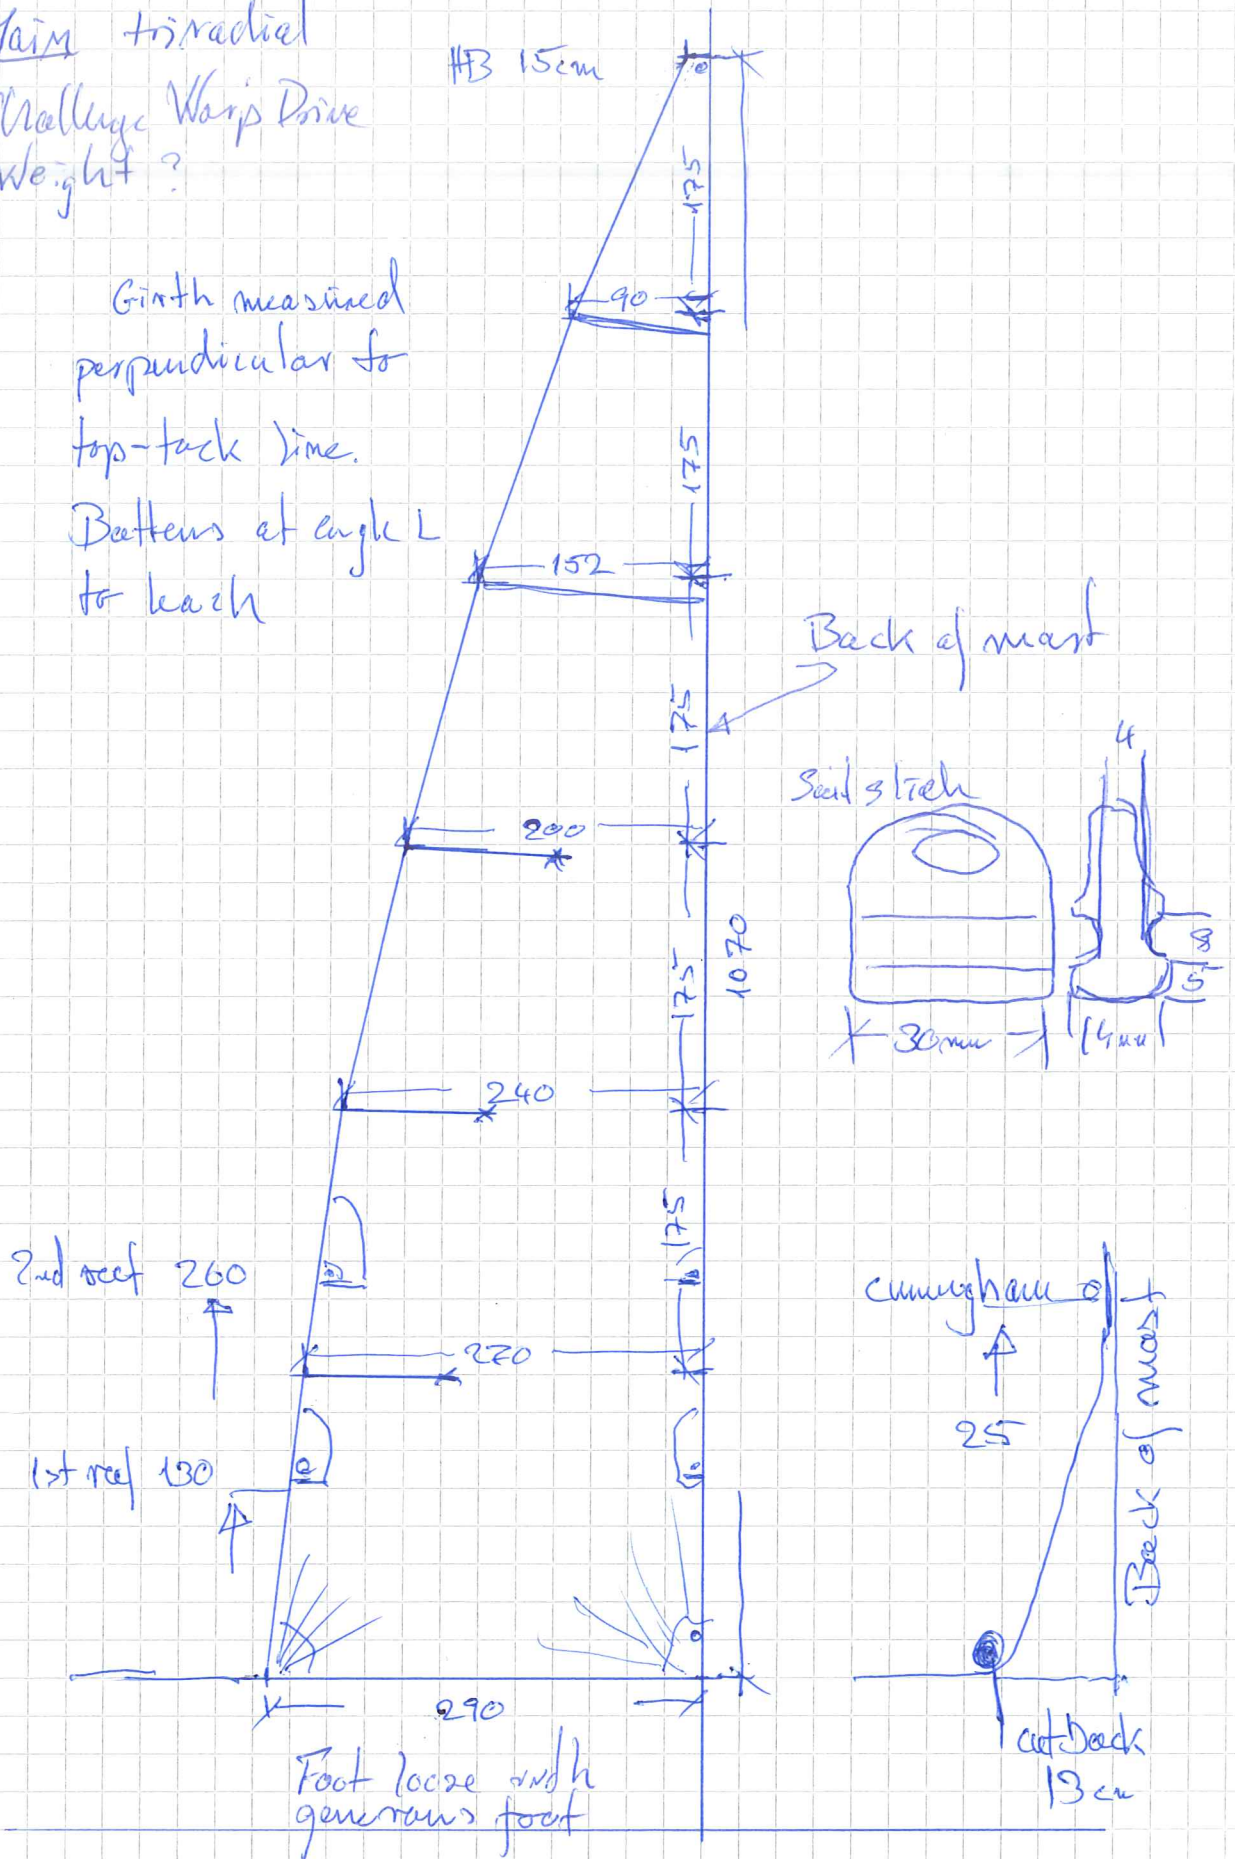 Main triradial
Challenge Warp Drive
Weight ?
HB 15cm
175
90
Girth measured
perpendicular to
top-tack line.
Battens at angle L
to leach
175
152
Back of mast
175
200
Sail slide
4
8
5
30mm
14mm
175
1070
240
175
2nd reef 260
270
1st reef 130
cunningham
25
Back of mast
cut back
13 cm
290
Foot loose with
generous foot